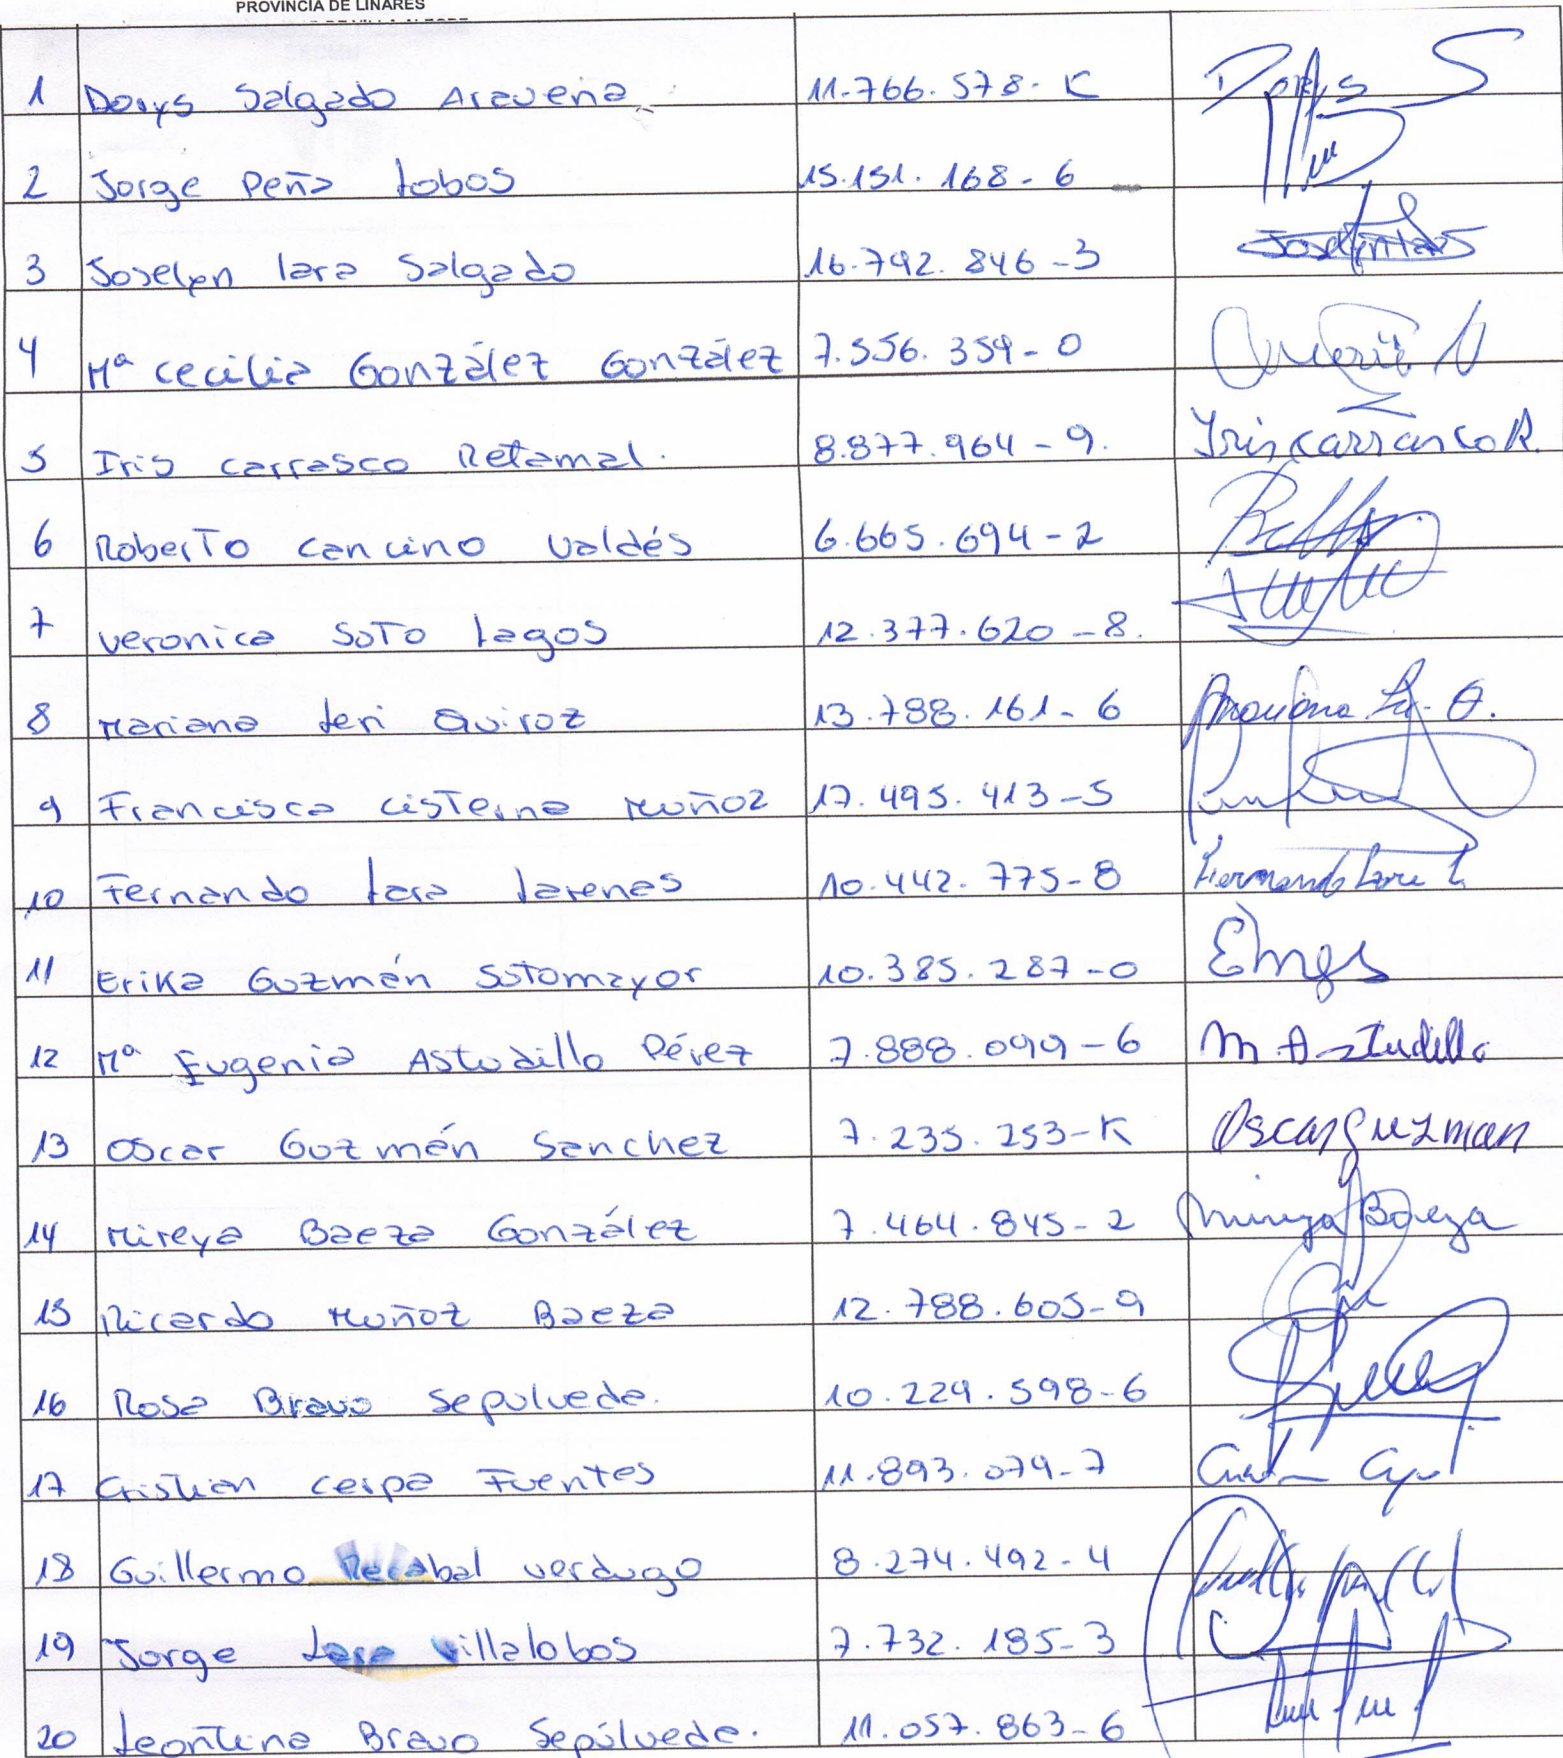 PROVINCIA DE LINARES
1 Dorys Salgado Aravena 11.766.578-K Dorys S
2 Jorge Peña Lobos 15.151.168-6
3 Joselyn Lara Salgado 16.792.846-3
4 Mª Cecilia González González 7.556.359-0
5 Iris Carrasco Retamal. 8.877.964-9. Iris Carrasco R.
6 Roberto Cancino Valdés 6.665.694-2
7 Veronica Soto Lagos 12.377.620-8.
8 Mariana Leri Quiroz 13.788.161-6 Mariana
9 Francisca Cisterna Muñoz 17.495.413-5
10 Fernando Lara Larenas 10.442.775-8 Fernando Lara L.
11 Erika Guzmán Sotomayor 10.385.287-0
12 Mª Eugenia Astudillo Pérez 7.888.099-6 M. Astudillo
13 Oscar Guzmán Sanchez 7.235.253-K Oscar Guzman
14 Mireya Baeza González 7.464.845-2 Mireya Baeza
15 Ricardo Muñoz Baeza 12.788.605-9
16 Rosa Bravo Sepulveda. 10.229.598-6
17 Cristian Cerpa Fuentes 11.893.079-7
18 Guillermo Recabal Verdugo 8.274.492-4
19 Jorge Lara Villalobos 7.732.185-3
20 Leontina Bravo Sepúlveda. 11.057.863-6